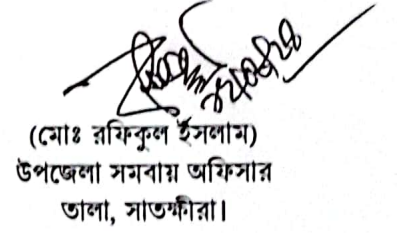 (মোঃ রফিকুল ইসলাম)
উপজেলা সমবায় অফিসার
তালা, সাতক্ষীরা।